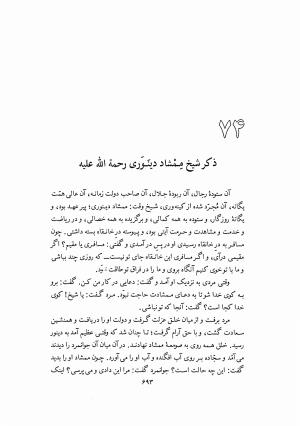 ۷۴
ذکر شیخ مِمْشاد دینَوَری رحمة الله علیه
آن ستودۀ رجال، آن ربودۀ جلال، آن صاحب دولت زمانه، آن عالی همّت
یگانه، آن مُجرّد شده از کینه‌وری، شیخ وقت: ممشاد دینوری؛ پیر عهد بود، و
یگانۀ روزگار، و ستوده به همه کمالی، و برگزیده به همه خصالی، و در ریاضت
و خدمت و مشاهدت و حرمت آیتی بود، و پیوسته در خانقاه بسته داشتی. چون
مسافر به در خانقاه رسیدی او در پس در آمدی و گفتی: مسافری یا مقیم؟ اگر
مقیمی درآی، و اگر مسافری این خانقاه جای تو نیست... که روزی چند بباشی
و ما با تو خوی کنیم آنگاه بروی و ما را در فراق تو طاقت نبود.
وقتی مردی به نزدیک او آمد و گفت: دعایی در کار من کن. گفت: برو
به کوی خدا شو تا به دعای ممشادت حاجت نبوَد. مرد گفت: یا شیخ! کوی
خدا کجا است؟ گفت: آنجا که تو نباشی.
مرد برفت و از میان خلق عزلت گرفت و دولت او را دریافت و همنشین
سعادت گشت، و با حق آرام گرفت؛ تا چنان شد که وقتی عظیم آمد به دینور
رسید. خلق همه روی به صومعۀ ممشاد نهادند. در میان آن جوانمرد را دیدند
می‌آمد و سجّاده بر روی آب افگنده و آب او را می‌آورد. چون ممشاد او را بدید
گفت: این چه حالت است؟ جوانمرد گفت: مرا این دادی و می‌پرسی؟ اینک
۶۹۳